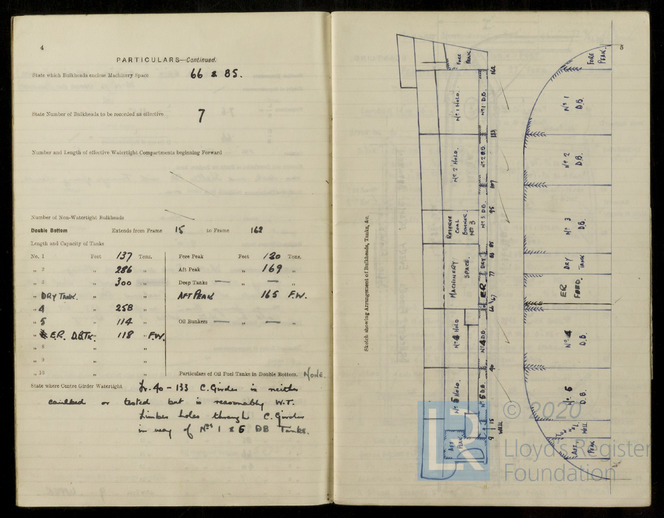 4
PARTICULARS—Continued.
State which Bulkheads enclose Machinery Space 66 & 85.
State Number of Bulkheads to be recorded as effective 7
Number and Length of effective Watertight Compartments beginning Forward
Number of Non-Watertight Bulkheads
Double Bottom Extends from Frame 15 to Frame 162
Length and Capacity of Tanks
No. 1 Feet 137 Tons.
„ 2 „ 286 „
„ 3 „ 300 „
DRY TANK. „
4 „ 258 „
„ 5 „ 114 „
E.R. D.B.TK. „ 118 „ F.W.
„ 8 „ „
„ 9 „ „
„ 10 „ „
Fore Peak Feet 120 Tons.
Aft Peak „ 169 „
Deep Tanks — „ — „
AFT PEAK 165 F.W.
Oil Bunkers — „ — „
Particulars of Oil Fuel Tanks in Double Bottom. None.
State where Centre Girder Watertight Fr. 40-133 C. Girder is neither
caulked or tested but is reasonably W.T.
Limber holes through C. Girder
in way of Nos 1 & 5 DB Tanks.
5
Sketch showing Arrangement of Bulkheads, Tanks, &c.
FORE PEAK
162
No 1 HOLD.
No 1 D.B.
133
No 2 HOLD.
No 2 D.B.
107
RESERVE COAL BUNKER No 3
No 3 D.B.
95
85
MACHINERY SPACE.
DRY
77
E.R.
66
No 4 HOLD
No 4 D.B.
40
No 5 HOLD.
No 5 D.B.
15
WELL
9
AFT PEAK
FORE PEAK
No 1 D.B.
No 2 D.B.
No 3 D.B.
DRY TANK
ER FEED.
No 4 D.B.
No 5 D.B.
WELL
AFT PEAK
© 2020
LR
Lloyd's Register
Foundation